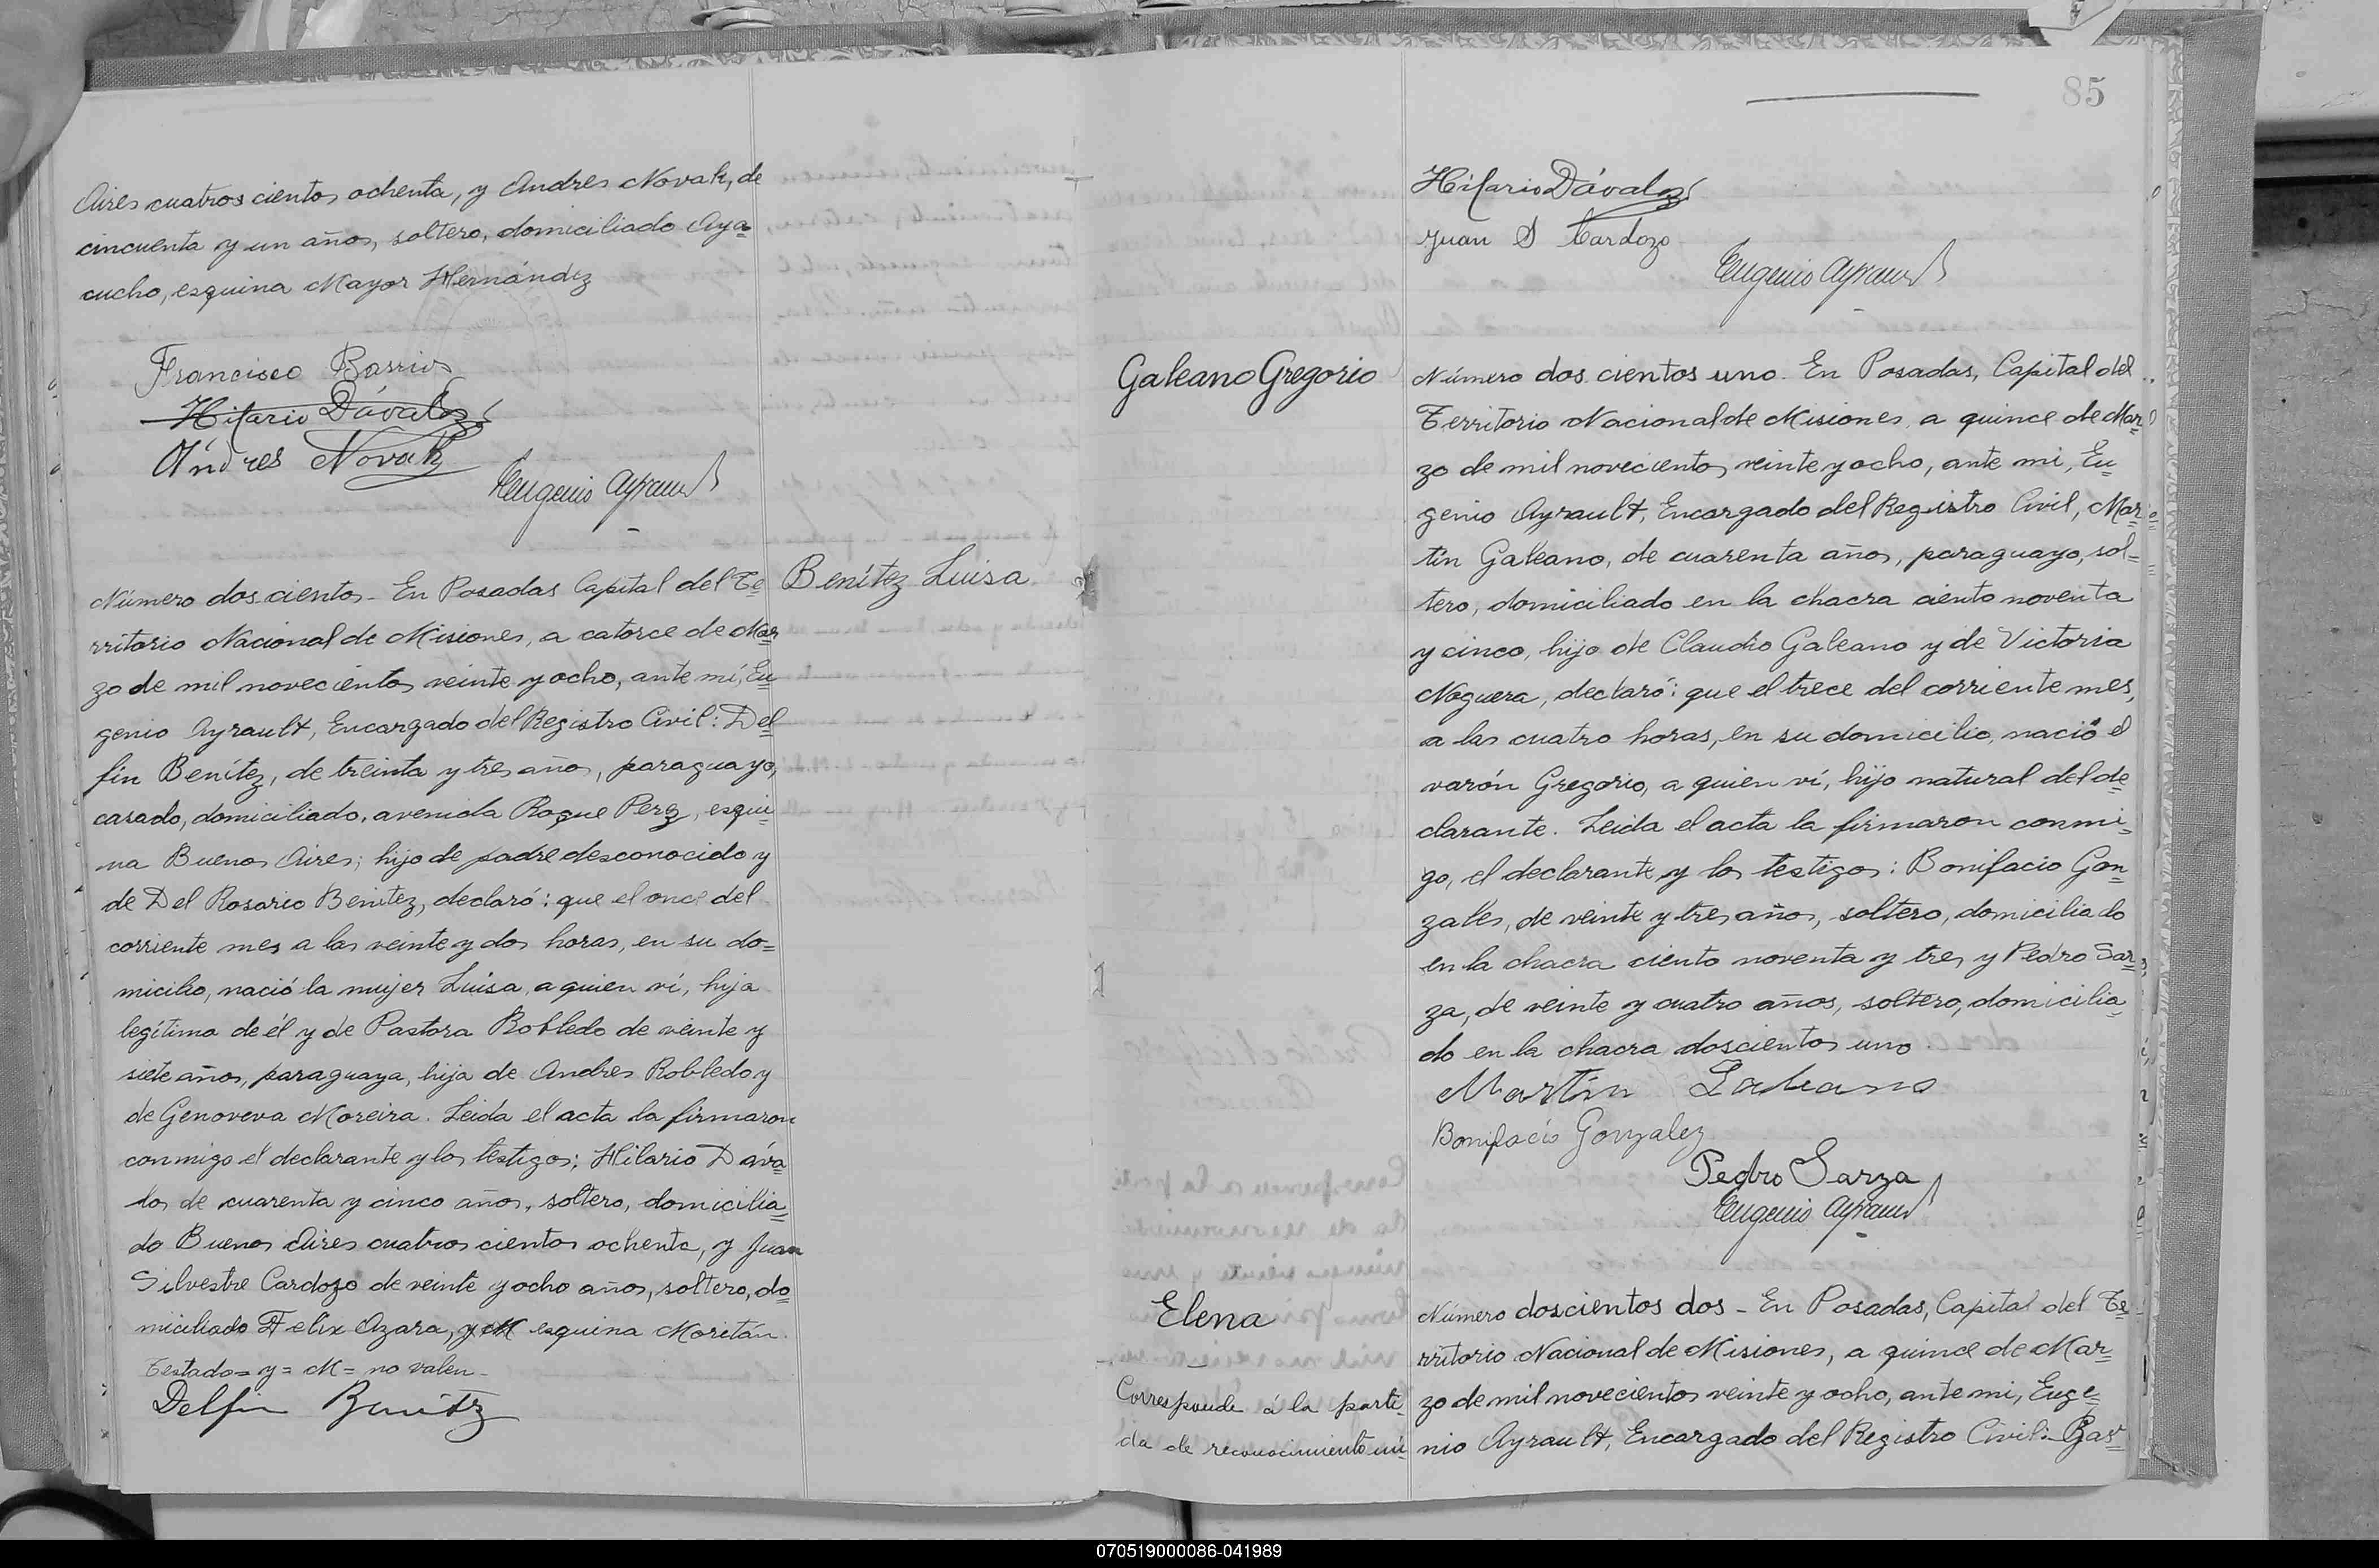 Aires cuatros cientos ochenta, y Andres Novak, de
cincuenta y un años, soltero, domiciliado Aya=
cucho, esquina Mayor Hernández
Francisco Barrios
Hilario Dávalos
Ándres Novak
Eugenio Ayrault
Número dos cientos - En Posadas Capital del Te= Benítez Luisa
rritorio Nacional de Misiones, a catorce de Mar=
zo de mil novecientos veinte y ocho, ante mí, Eu=
genio Ayrault, Encargado del Registro Civil: Del=
fin Benítez, de treinta y tres años, paraguayo,
casado, domiciliado, avenida Roque Perz, esqui=
na Buenos Aires; hijo de padre desconocido y
de Del Rosario Benitez, declaró: que el once del
corriente mes a las veinte y dos horas, en su do=
micilio, nació la mujer Luisa, a quien ví, hija
legítima de él y de Pastora Robledo de veinte y
siete años, paraguaya, hija de Andres Robledo y
de Genoveva Moreira. Leida el acta la firmaron
conmigo el declarante y los testigos; Hilario Dáva=
los de cuarenta y cinco años, soltero, domicilia=
do Buenos Aires cuatros cientos ochenta, y Juan
Silvestre Cardozo de veinte y ocho años, soltero, do=
miciliado Felix Azara, y M esquina Moritán.
Testado= y= M= no valen-
Delfin Benítz
85
Hilario Dávalos
Juan S Cardozo
Eugenio Ayrault
Galeano Gregorio
Número dos cientos uno. En Posadas, Capital del
Territorio Nacional de Misiones, a quince de Mar=
zo de mil novecientos veinte y ocho, ante mi, Eu=
genio Ayrault, Encargado del Registro Civil, Mar=
tín Galeano, de cuarenta años, paraguayo, sol=
tero, domiciliado en la chacra ciento noventa
y cinco, hijo de Claudio Galeano y de Victoria
Noguera, declaró: que el trece del corriente mes,
a las cuatro horas, en su domicilio, nació el
varón Gregorio, a quien ví, hijo natural del de=
clarante. Leida el acta la firmaron conmi=
go, el declarante y los testigos: Bonifacio Gon=
zales, de veinte y tres años, soltero, domiciliado
en la chacra ciento noventa y tres y Pedro Sar=
za, de veinte y cuatro años, soltero, domicilia=
do en la chacra doscientos uno.
Martín Galeano
Bonifacio Gonzalez
Pedro Sarza
Eugenio Ayrault
Elena
Número doscientos dos - En Posadas, Capital del Te=
rritorio Nacional de Misiones, a quince de Mar=
zo de mil novecientos veinte y ocho, ante mi, Euge=
nio Ayrault, Encargado del Registro Civil:
Corresponde á la parti=
da de reconocimiento nú=
070519000086-041989